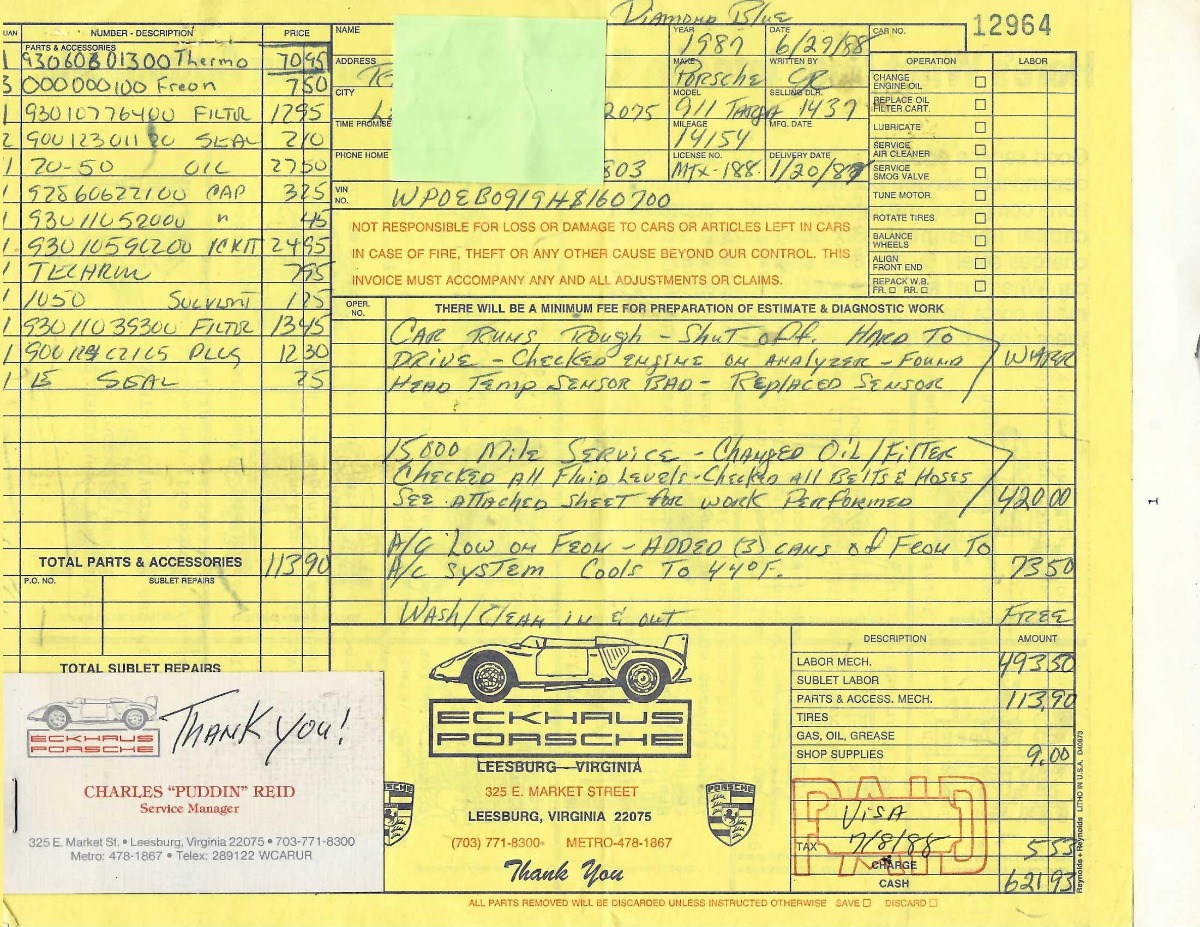 Diamond Blue
12964
QUAN NUMBER - DESCRIPTION PRICE
PARTS & ACCESSORIES
1 93060601300 Thermo 7095
3 000000100 Freon 750
1 93010776400 FILTR 1295
2 90012301120 SEAL 210
1 20-50 OIL 2750
1 92860622100 CAP 325
1 93011052000 " 45
1 93010590200 ICKIT 2495
1 TECHRON 795
1 1050 SOLVENT 175
1 93011039300 FILTR 1345
1 PLUG 1230
1 15 SEAL 25
TOTAL PARTS & ACCESSORIES 11390
P.O. NO. SUBLET REPAIRS
TOTAL SUBLET REPAIRS
NAME
ADDRESS
CITY 2075
TIME PROMISE
PHONE HOME 803
VIN NO. WPOEB0919HS160700
YEAR 1987
DATE 6/29/88
MAKE Porsche
WRITTEN BY CR
MODEL 911 Targa
SELLING DLR. 1437
MILEAGE 14154
MFG. DATE
LICENSE NO. MTX-188
DELIVERY DATE 1/20/87
CAR NO.
OPERATION LABOR
CHANGE ENGINE OIL
REPLACE OIL FILTER CART.
LUBRICATE
SERVICE AIR CLEANER
SERVICE SMOG VALVE
TUNE MOTOR
ROTATE TIRES
BALANCE WHEELS
ALIGN FRONT END
REPACK W.B.
FR. RR.
NOT RESPONSIBLE FOR LOSS OR DAMAGE TO CARS OR ARTICLES LEFT IN CARS
IN CASE OF FIRE, THEFT OR ANY OTHER CAUSE BEYOND OUR CONTROL. THIS
INVOICE MUST ACCOMPANY ANY AND ALL ADJUSTMENTS OR CLAIMS.
OPER. NO. THERE WILL BE A MINIMUM FEE FOR PREPARATION OF ESTIMATE & DIAGNOSTIC WORK
CAR RUNS ROUGH - Shut off. HARD TO
DRIVE - CHECKED ENGINE ON ANALYZER - FOUND
HEAD TEMP SENSOR BAD - REPLACED SENSOR
15,000 MILE SERVICE - CHANGED OIL/FILTER
CHECKED ALL FLUID LEVELS - CHECKED ALL BELTS & HOSES
SEE ATTACHED SHEET FOR WORK PERFORMED 42000
A/C LOW ON FEON - ADDED (3) CANS of FEON TO
A/C SYSTEM COOLS TO 44°F. 7350
WASH/CLEAN IN & OUT FREE
ECKHAUS
PORSCHE
LEESBURG VIRGINIA
325 E. MARKET STREET
LEESBURG, VIRGINIA 22075
(703) 771-8300 METRO-478-1867
Thank You
PORSCHE
PORSCHE
DESCRIPTION AMOUNT
LABOR MECH. 49350
SUBLET LABOR
PARTS & ACCESS. MECH. 113,90
TIRES
GAS, OIL, GREASE
SHOP SUPPLIES 9.00
PAID
VISA
7/8/88
TAX 553
CHARGE
CASH 62193
Reynolds + Reynolds LITHO IN U.S.A. 040873
ALL PARTS REMOVED WILL BE DISCARDED UNLESS INSTRUCTED OTHERWISE SAVE DISCARD
THANK YOU!
ECKHAUS
PORSCHE
CHARLES "PUDDIN" REID
Service Manager
325 E. Market St. • Leesburg, Virginia 22075 • 703-771-8300
Metro: 478-1867 • Telex: 289122 WCARUR